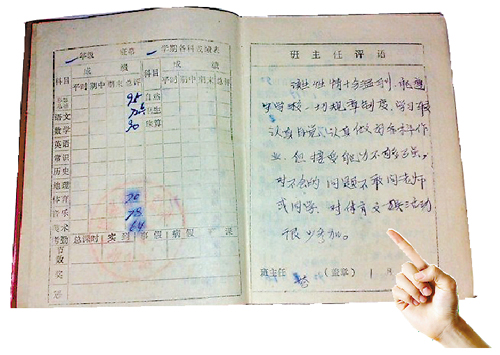 一年级 班第一学期各科成绩表
科目 成绩 科目 成绩
平时 期中 期末 总评 平时 期中 期末 总评
95 自然
语文 72
数学 90 珠算
英语
常识
历史
地理
体育 70
音乐 78
美术 64
总课时 实到 事假 病假
班主任评语
该生性情十分温和,能遵
守学校一切规章制度,学习很
认真自觉,认真做好各科作
业,但接受能力不够强,
对不会的问题不敢问老师
或同学。对体育文娱活动
很少参加。
班主任 (盖章) 1月